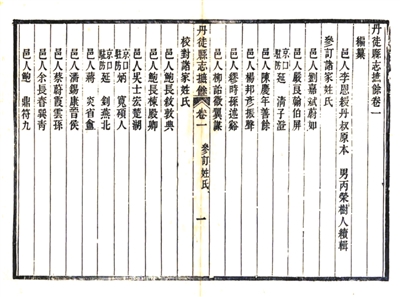 丹徒縣志摭餘卷一
編纂
邑人李恩綬丹叔原本　男丙榮樹人續輯
參訂諸家姓氏
邑人劉嘉斌蔚如
邑人嚴良翰伯屏
京口駐防延　清子澄
邑人陳慶年善餘
邑人楊邦彥振聲
邑人繆時孫述谿
邑人柳詒徵翼謀
校對諸家姓氏
丹徒縣志摭餘
卷一
參訂姓氏
一
邑人鮑長敘敦典
邑人鮑長棟殿卿
吳士宏楚湖
京口駐防炳　寬碩人
京口駐防延　釗燕北
邑人蔣　炎省盦
邑人潘錫康晉侯
邑人蔡蔚霞雲孫
邑人余長春巽青
邑人鮑　鼎符九